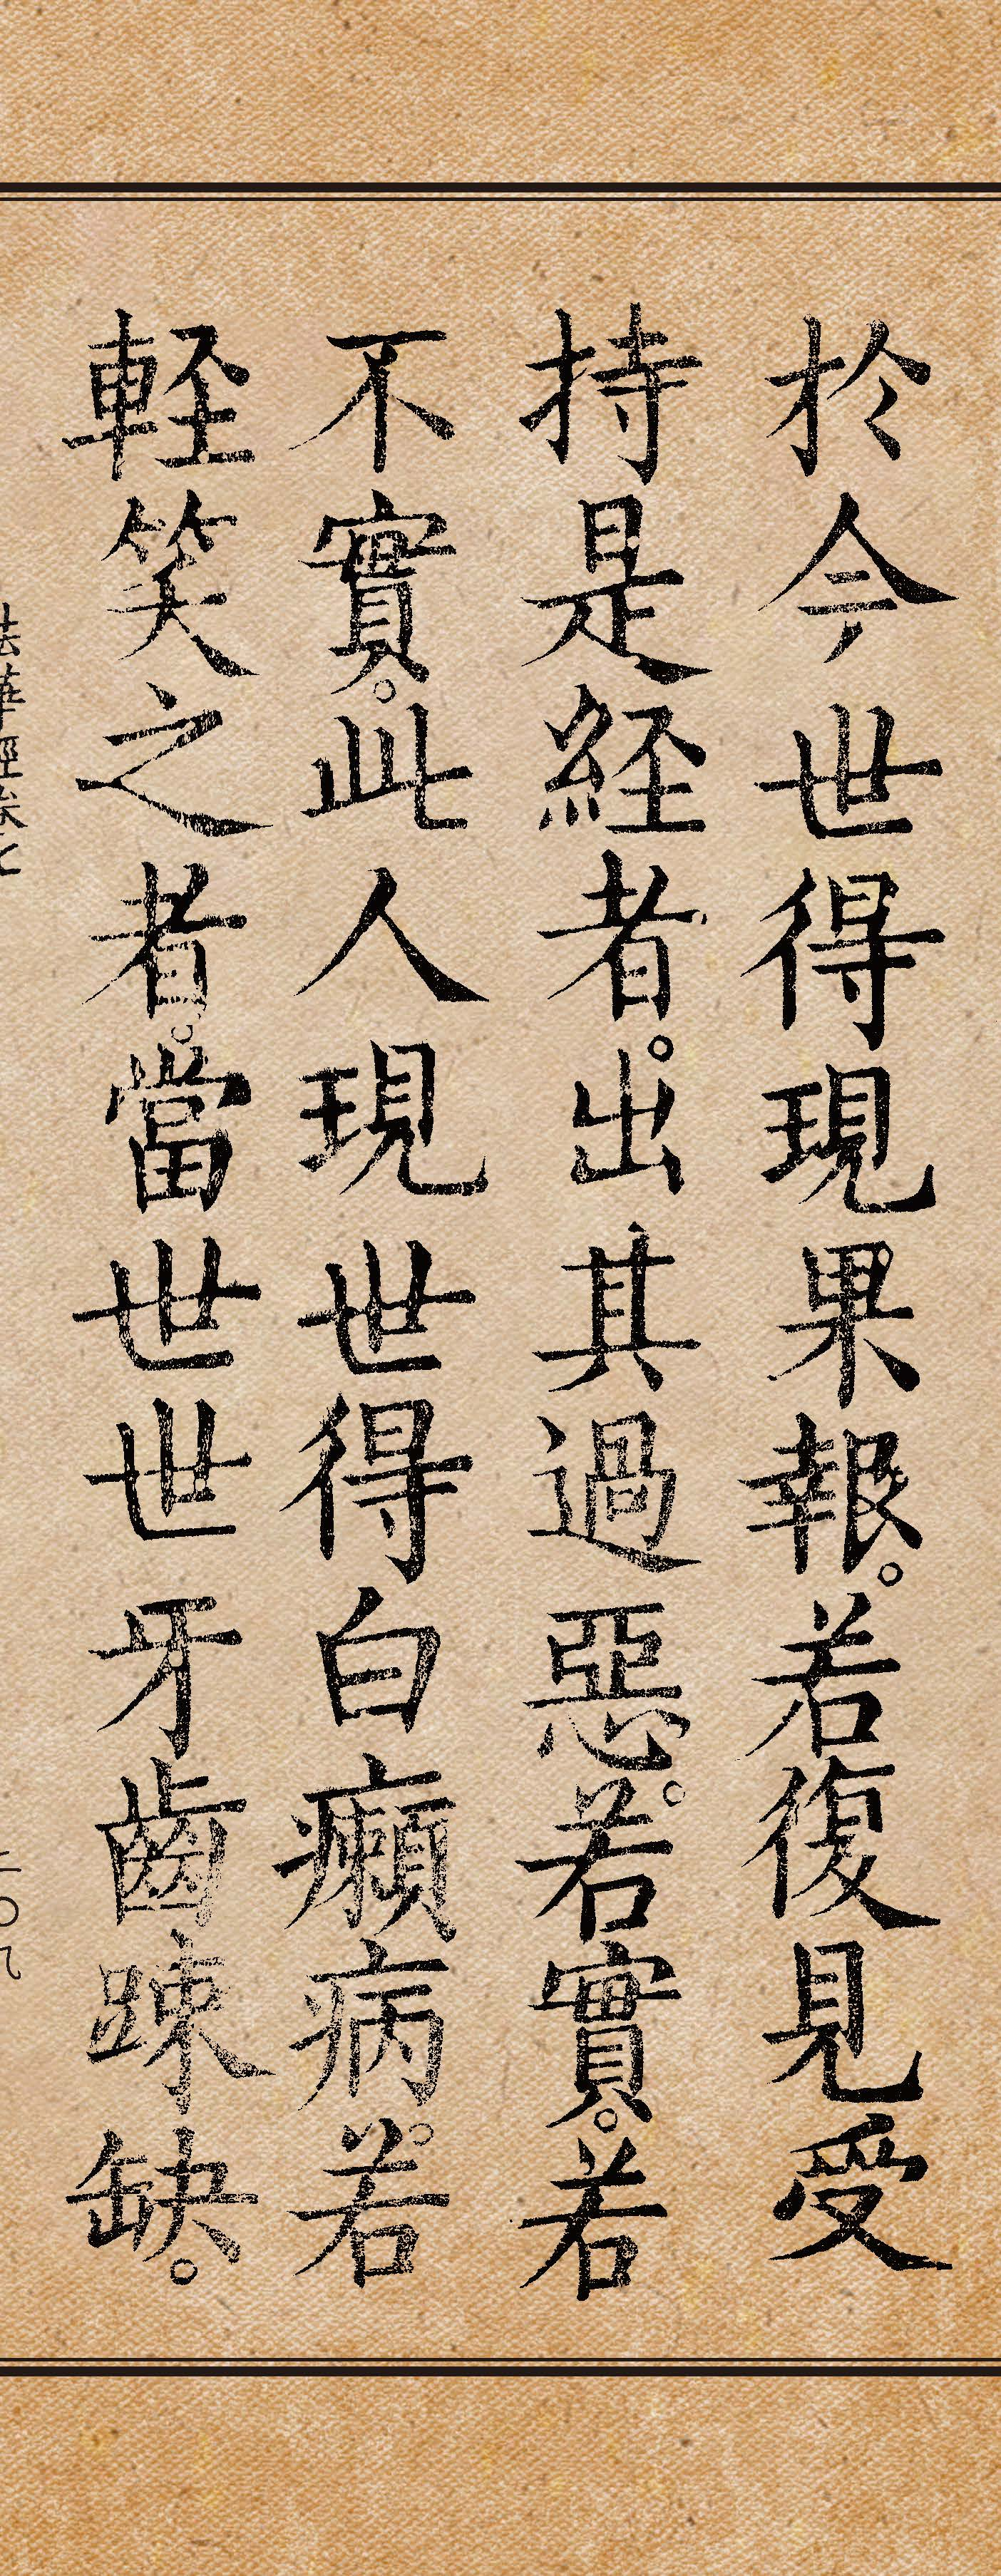 於今世得現果報。若復見受
持是経者。出其過惡。若實。若
不實。此人現世得白癩病。若
軽笑之者。當世世牙齒踈缺。